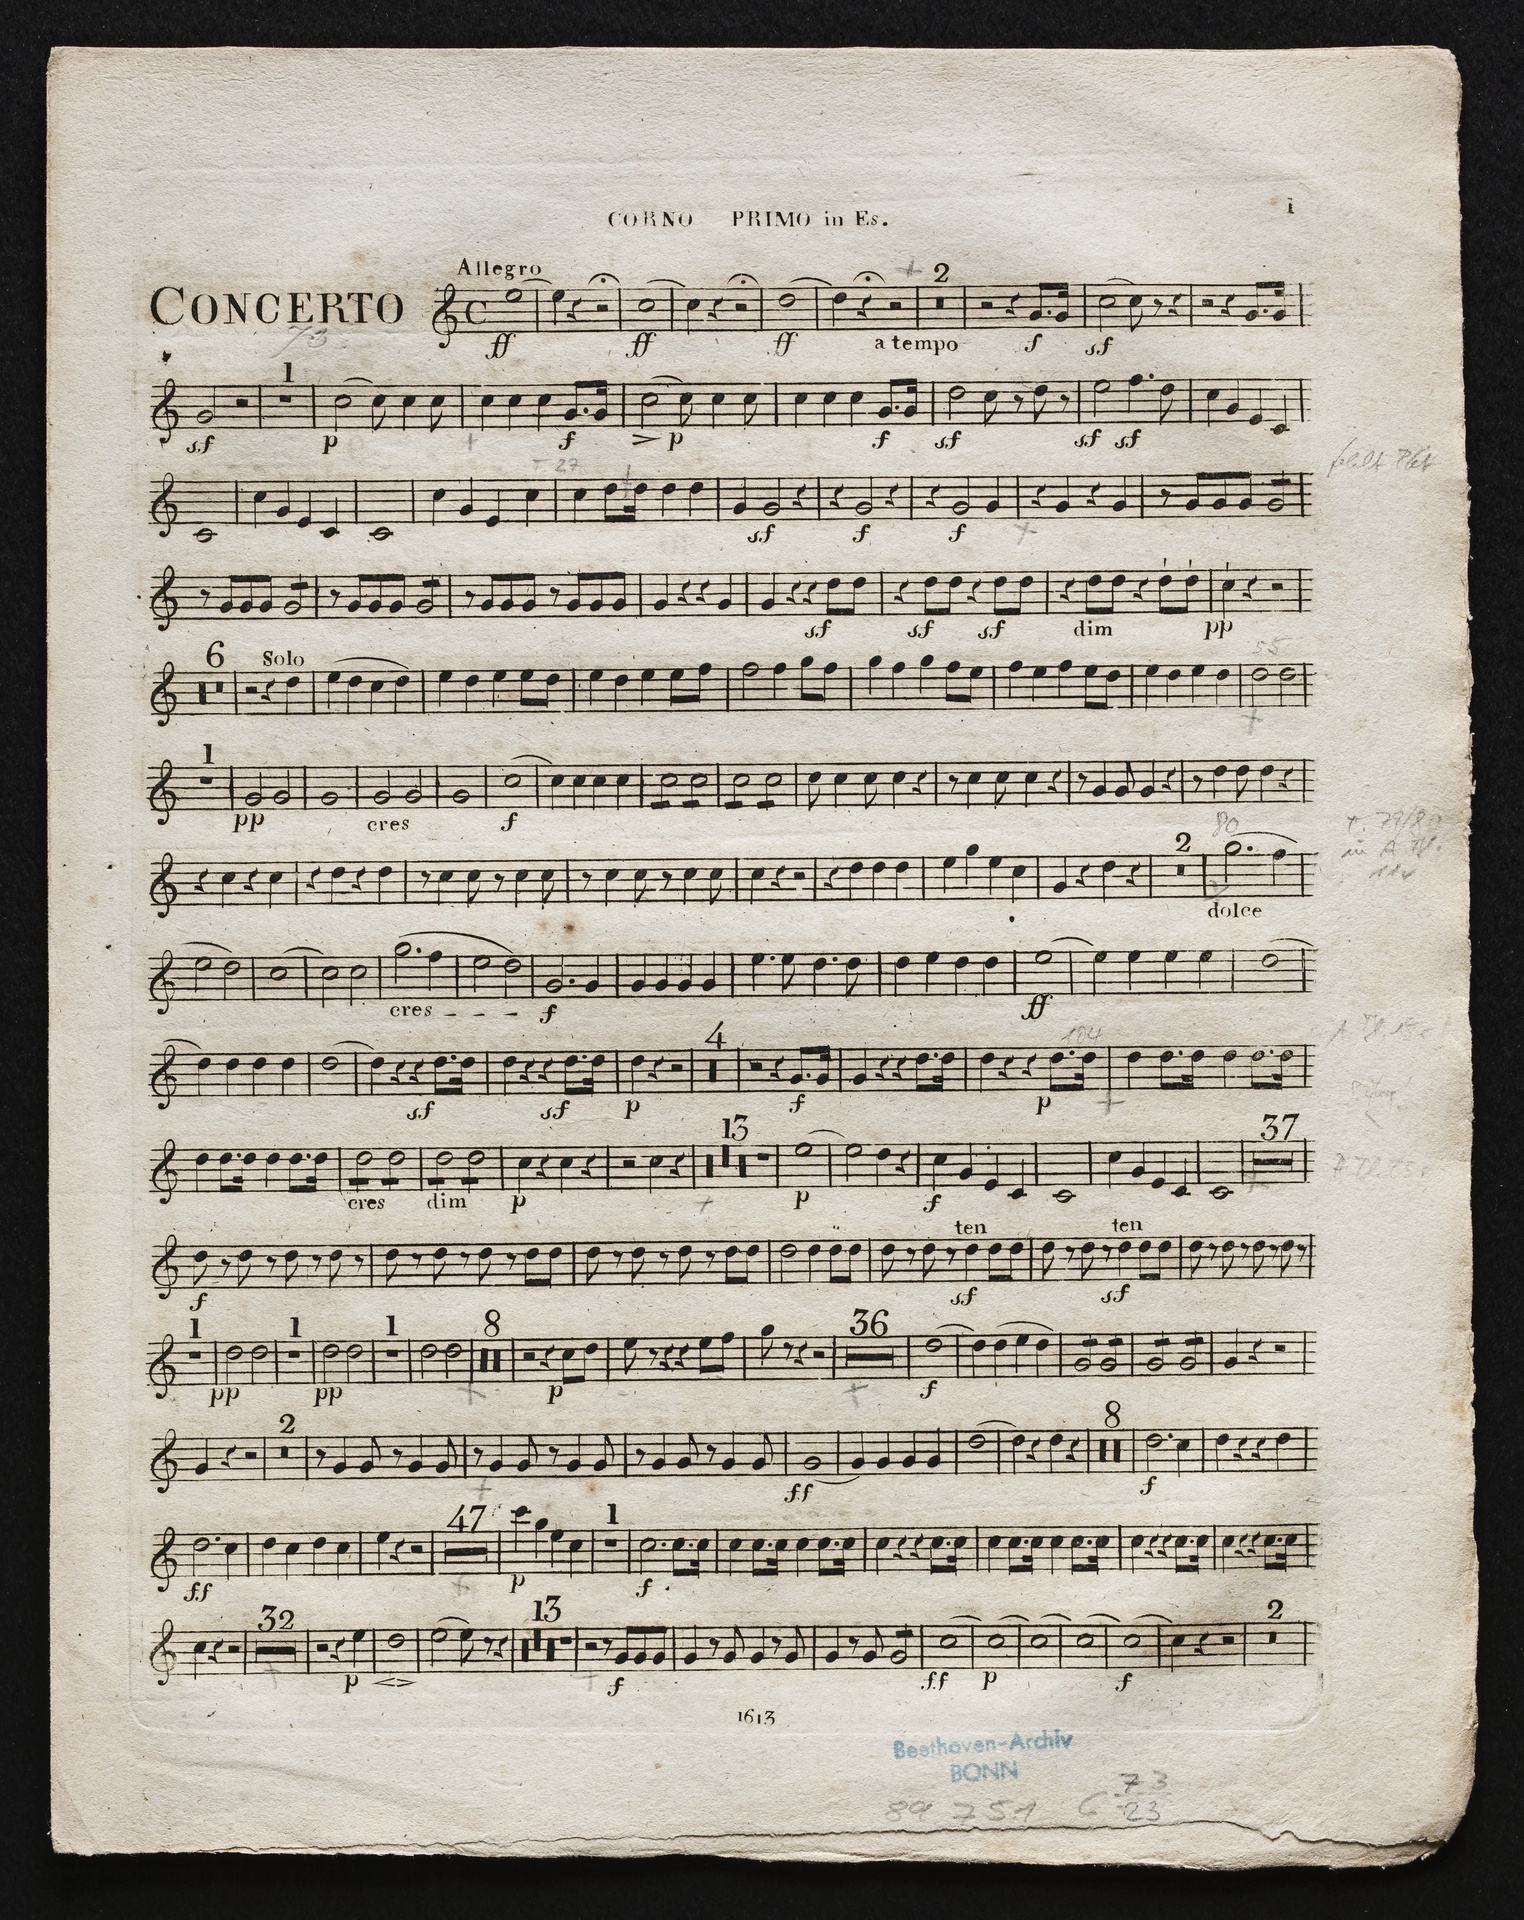 CORNO PRIMO in Es.
1
Allegro
CONCERTO
73
2
ff ff ff a tempo f sf
1
sf p f > p f sf sf sf
T 27
sf f f
sf sf sf dim pp
6 Solo 55
1
pp cres f
80
2
dolce
cres - - - f ff
4 104
sf sf p f p
13 37
cres dim p p f
ten ten
f sf sf
1 1 1 8 36
pp pp p f
2 8
ff f
47 1
ff p f
32 13
2
p <> f ff p f
1613
Beethoven-Archiv
BONN
C 73
23